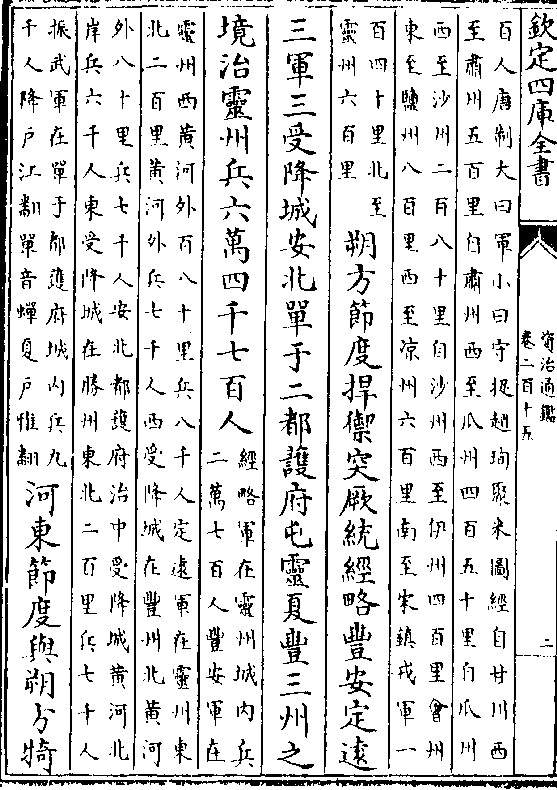 欽定四庫全書
資治通鑑
卷二百十五
二
百人唐制大曰軍小曰守捉趙珣聚米圖經自甘州西
至肅州五百里自肅州西至瓜州四百五十里自瓜州
西至沙州二百八十里自沙州西至伊州四百里會州
東至鹽州八百里西至涼州六百里南至宋鎮戎軍一
百四十里北至
靈州六百里
朔方節度捍禦突厥統經略豐安定遠
三軍三受降城安北單于二都護府屯靈夏豐三州之
境治靈州兵六萬四千七百人
經略軍在靈州城内兵
二萬七百人豐安軍在
靈州西黄河外百八十里兵八千人定遠軍在靈州東
北二百里黄河外兵七千人西受降城在豐州北黄河
外八十里兵七千人安北都護府治中受降城黄河北
岸兵六千人東受降城在勝州東北二百里兵七千人
振武軍在單于都護府城内兵九
千人降户江翻單音蟬夏户雅翻
河東節度與朔方犄